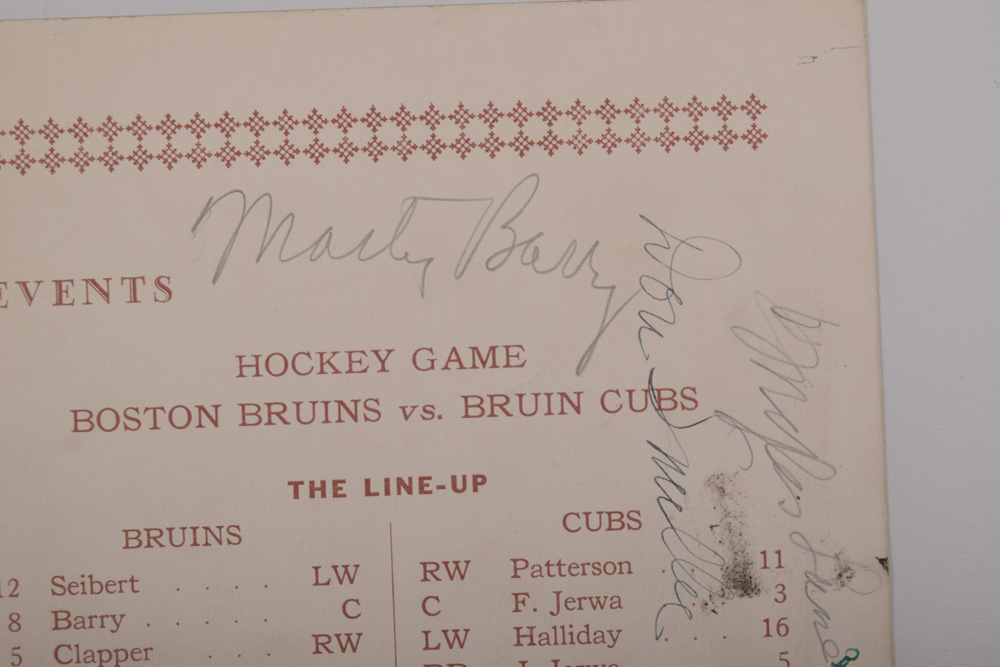 Marty Barry
Don Smillie
EVENTS
HOCKEY GAME
BOSTON BRUINS vs. BRUIN CUBS
THE LINE-UP
BRUINS CUBS
12 Seibert . . . . LW RW Patterson 11
8 Barry . . . . . C C F. Jerwa 3
5 Clapper . . . RW LW Halliday . . 16
J. Jerwa 5